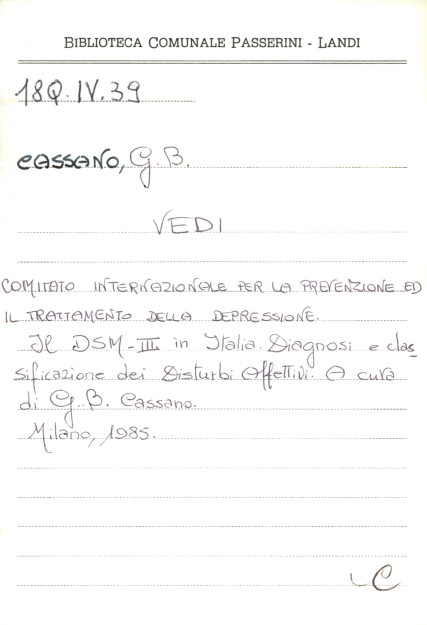 BIBLIOTECA COMUNALE PASSERINI - LANDI
18Q.IV.39
CASSANO, G.B.
VEDI
COMITATO INTERNAZIONALE PER LA PREVENZIONE ED
IL TRATTAMENTO DELLA DEPRESSIONE.
Il DSM-III in Italia. Diagnosi e clas
sificazione dei Disturbi Affettivi. A cura
di G.B. Cassano.
Milano, 1985.